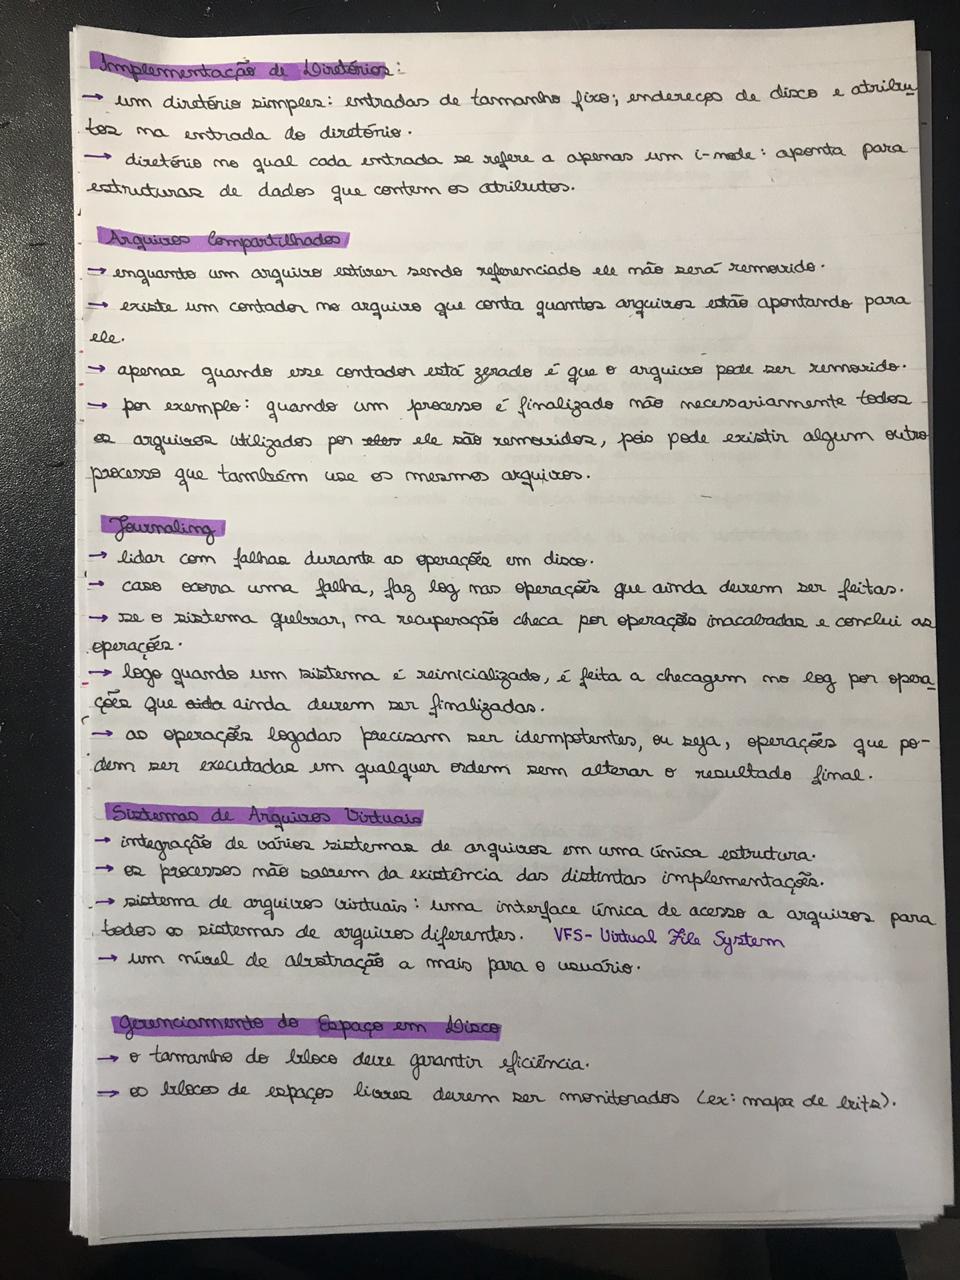 Implementação de Diretórios:
→ um diretório simples: entradas de tamanho fixo; endereços de disco e atribu-
tos na entrada do diretório.
→ diretório no qual cada entrada se refere a apenas um i-node: aponta para
estruturas de dados que contem os atributos.
Arquivos Compartilhados
→ enquanto um arquivo estiver sendo referenciado ele não será removido.
→ existe um contador no arquivo que conta quantos arquivos estão apontando para
ele.
→ apenas quando esse contador está zerado é que o arquivo pode ser removido.
→ por exemplo: quando um processo é finalizado não necessariamente todos
os arquivos utilizados por ele são removidos, pois pode existir algum outro
processo que também use os mesmos arquivos.
Journaling
→ lidar com falhas durante as operações em disco.
→ caso ocorra uma falha, faz log nas operações que ainda devem ser feitas.
→ se o sistema quebrar, na recuperação checa por operações inacabadas e conclui as
operações.
→ logo quando um sistema é reinicializado, é feita a checagem no log por opera-
ções que ainda devem ser finalizadas.
→ as operações logadas precisam ser idempotentes, ou seja, operações que po-
dem ser executadas em qualquer ordem sem alterar o resultado final.
Sistemas de Arquivos Virtuais
→ integração de vários sistemas de arquivos em uma única estrutura.
→ os processos não sabem da existência das distintas implementações.
→ sistema de arquivos virtuais: uma interface única de acesso a arquivos para
todos os sistemas de arquivos diferentes. VFS- Virtual File System
→ um nível de abstração a mais para o usuário.
Gerenciamento do Espaço em Disco
→ o tamanho do bloco deve garantir eficiência.
→ os blocos de espaços livres devem ser monitorados (ex: mapa de bits).